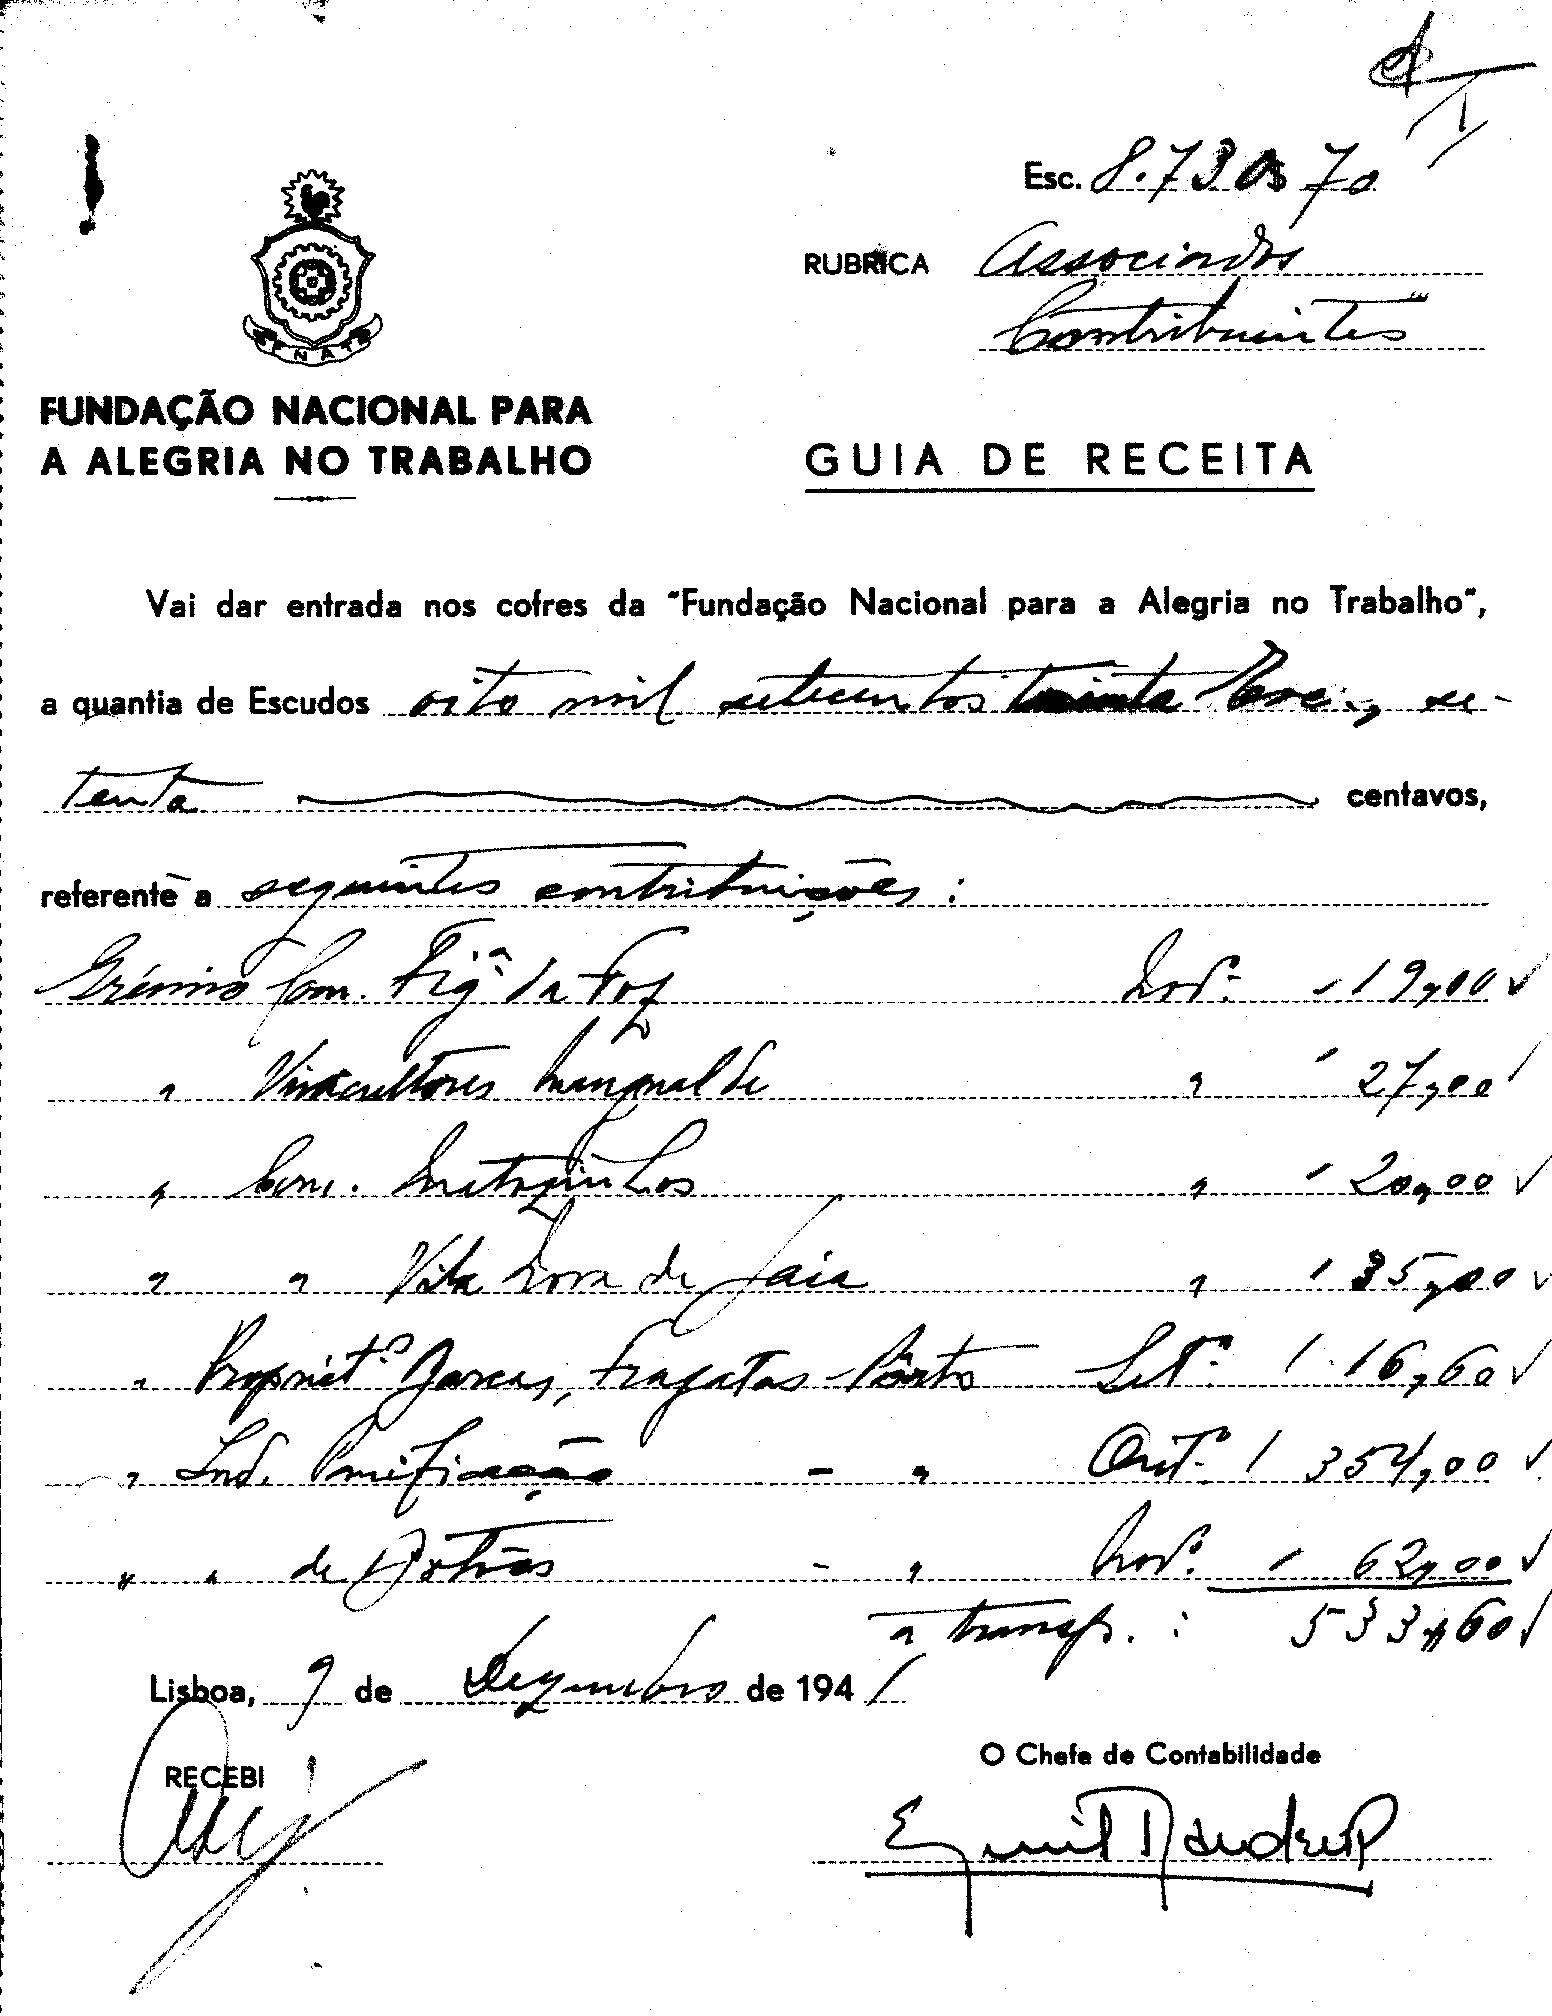 Esc. 8.730$70
RUBRICA Associados
Contribuintes
FENAT
FUNDAÇÃO NACIONAL PARA
A ALEGRIA NO TRABALHO
GUIA DE RECEITA
Vai dar entrada nos cofres da "Fundação Nacional para a Alegria no Trabalho",
a quantia de Escudos oito mil setecentos trinta esc., se-
tenta centavos,
referente a seguintes contribuições:
Grémio Com. Figª da Foz Novº. - 19,00
" Vinicultores Mangualde " 27,00
" Com. Matozinhos " 20,00
" " Vila Nova de Gaia " 35,00
" Propriet.º Barcas, Fragatas - Pôrto Setº. 16,60
" Ind. Panificação - " Outº. 354,00
" " de - " Novº. 62,00
a transp. : 533,60
Lisboa, 9 de Dezembro de 1941
RECEBI
O Chefe de Contabilidade